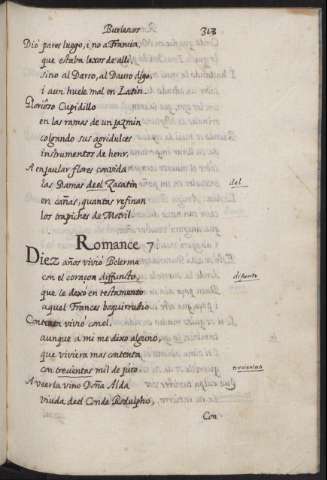 Burlescos 363
Dió pares luego, i no a Francia,
que estaba lexos de alli,
sino al Darro, al Dauro digo,
i aun huele mal en Latin.
Glorioso Cupidillo
en las ramas de un jazmin
colgando sus agridulces
instrumentos de herir,
A enjaular flores conuida
las Damas deel Zacatin
del
en cañas, quantas refinan
los trapiches de Motril
Romance 7
Diez años vivió Belerma
con el coraçon diffuncto,
difunto
que le dexó en testamento
aquel Frances boquirrubio
Contenta vivió con el,
aunque a mi me dixo alguno,
que viviera mas contenta
con trecientas mil de juro
A verla vino Doña Alda
viuda deel Conde Rodulpho,
Con